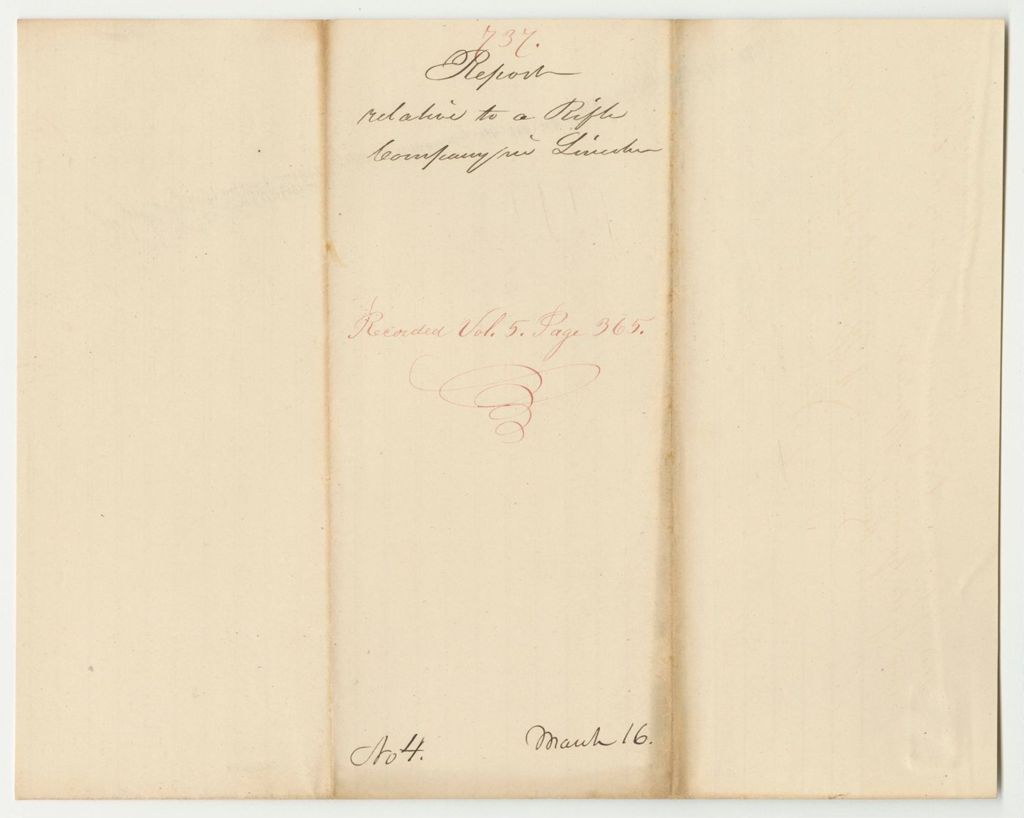 737.
Report
relative to a Rifle
Company in Lincoln
Recorded Vol. 5. Page 365.
No 4. March 16.